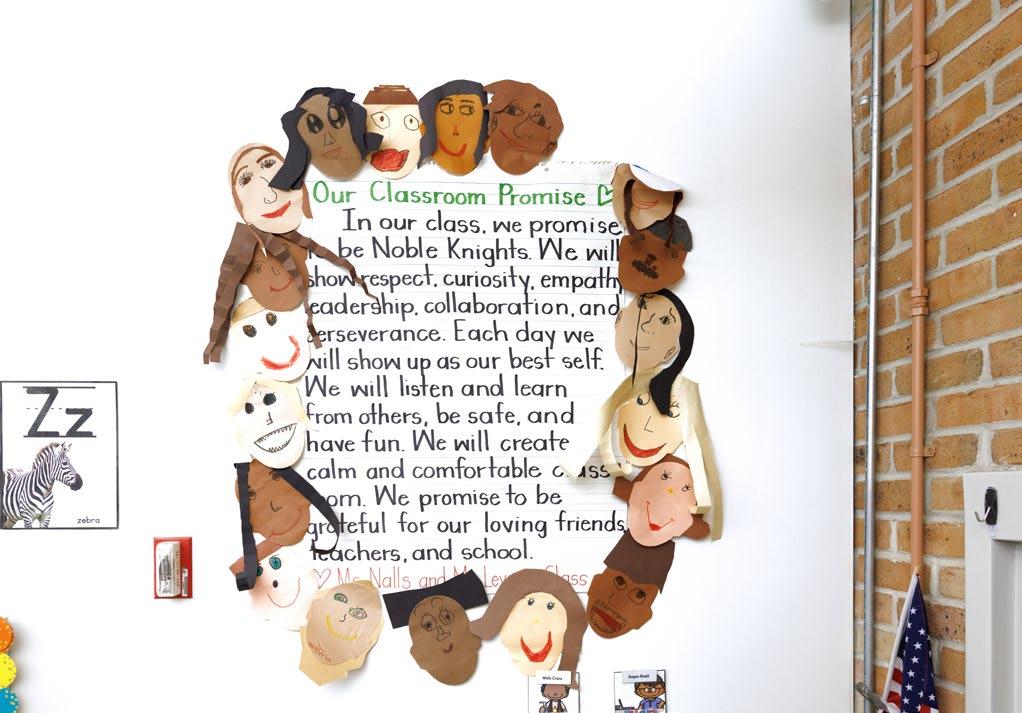 Our Classroom Promise
In our class, we promise
be Noble Knights. We will
show respect, curiosity, empathy
eadership, collaboration, and
erseverance. Each day we
will show up as our best self.
We will listen and learn
from others, be safe, and
have fun. We will create
calm and comfortable c ass
oom. We promise to be
grateful for our loving friends,
teachers, and school.
Ms. Nalls and Class
Zz
zebra